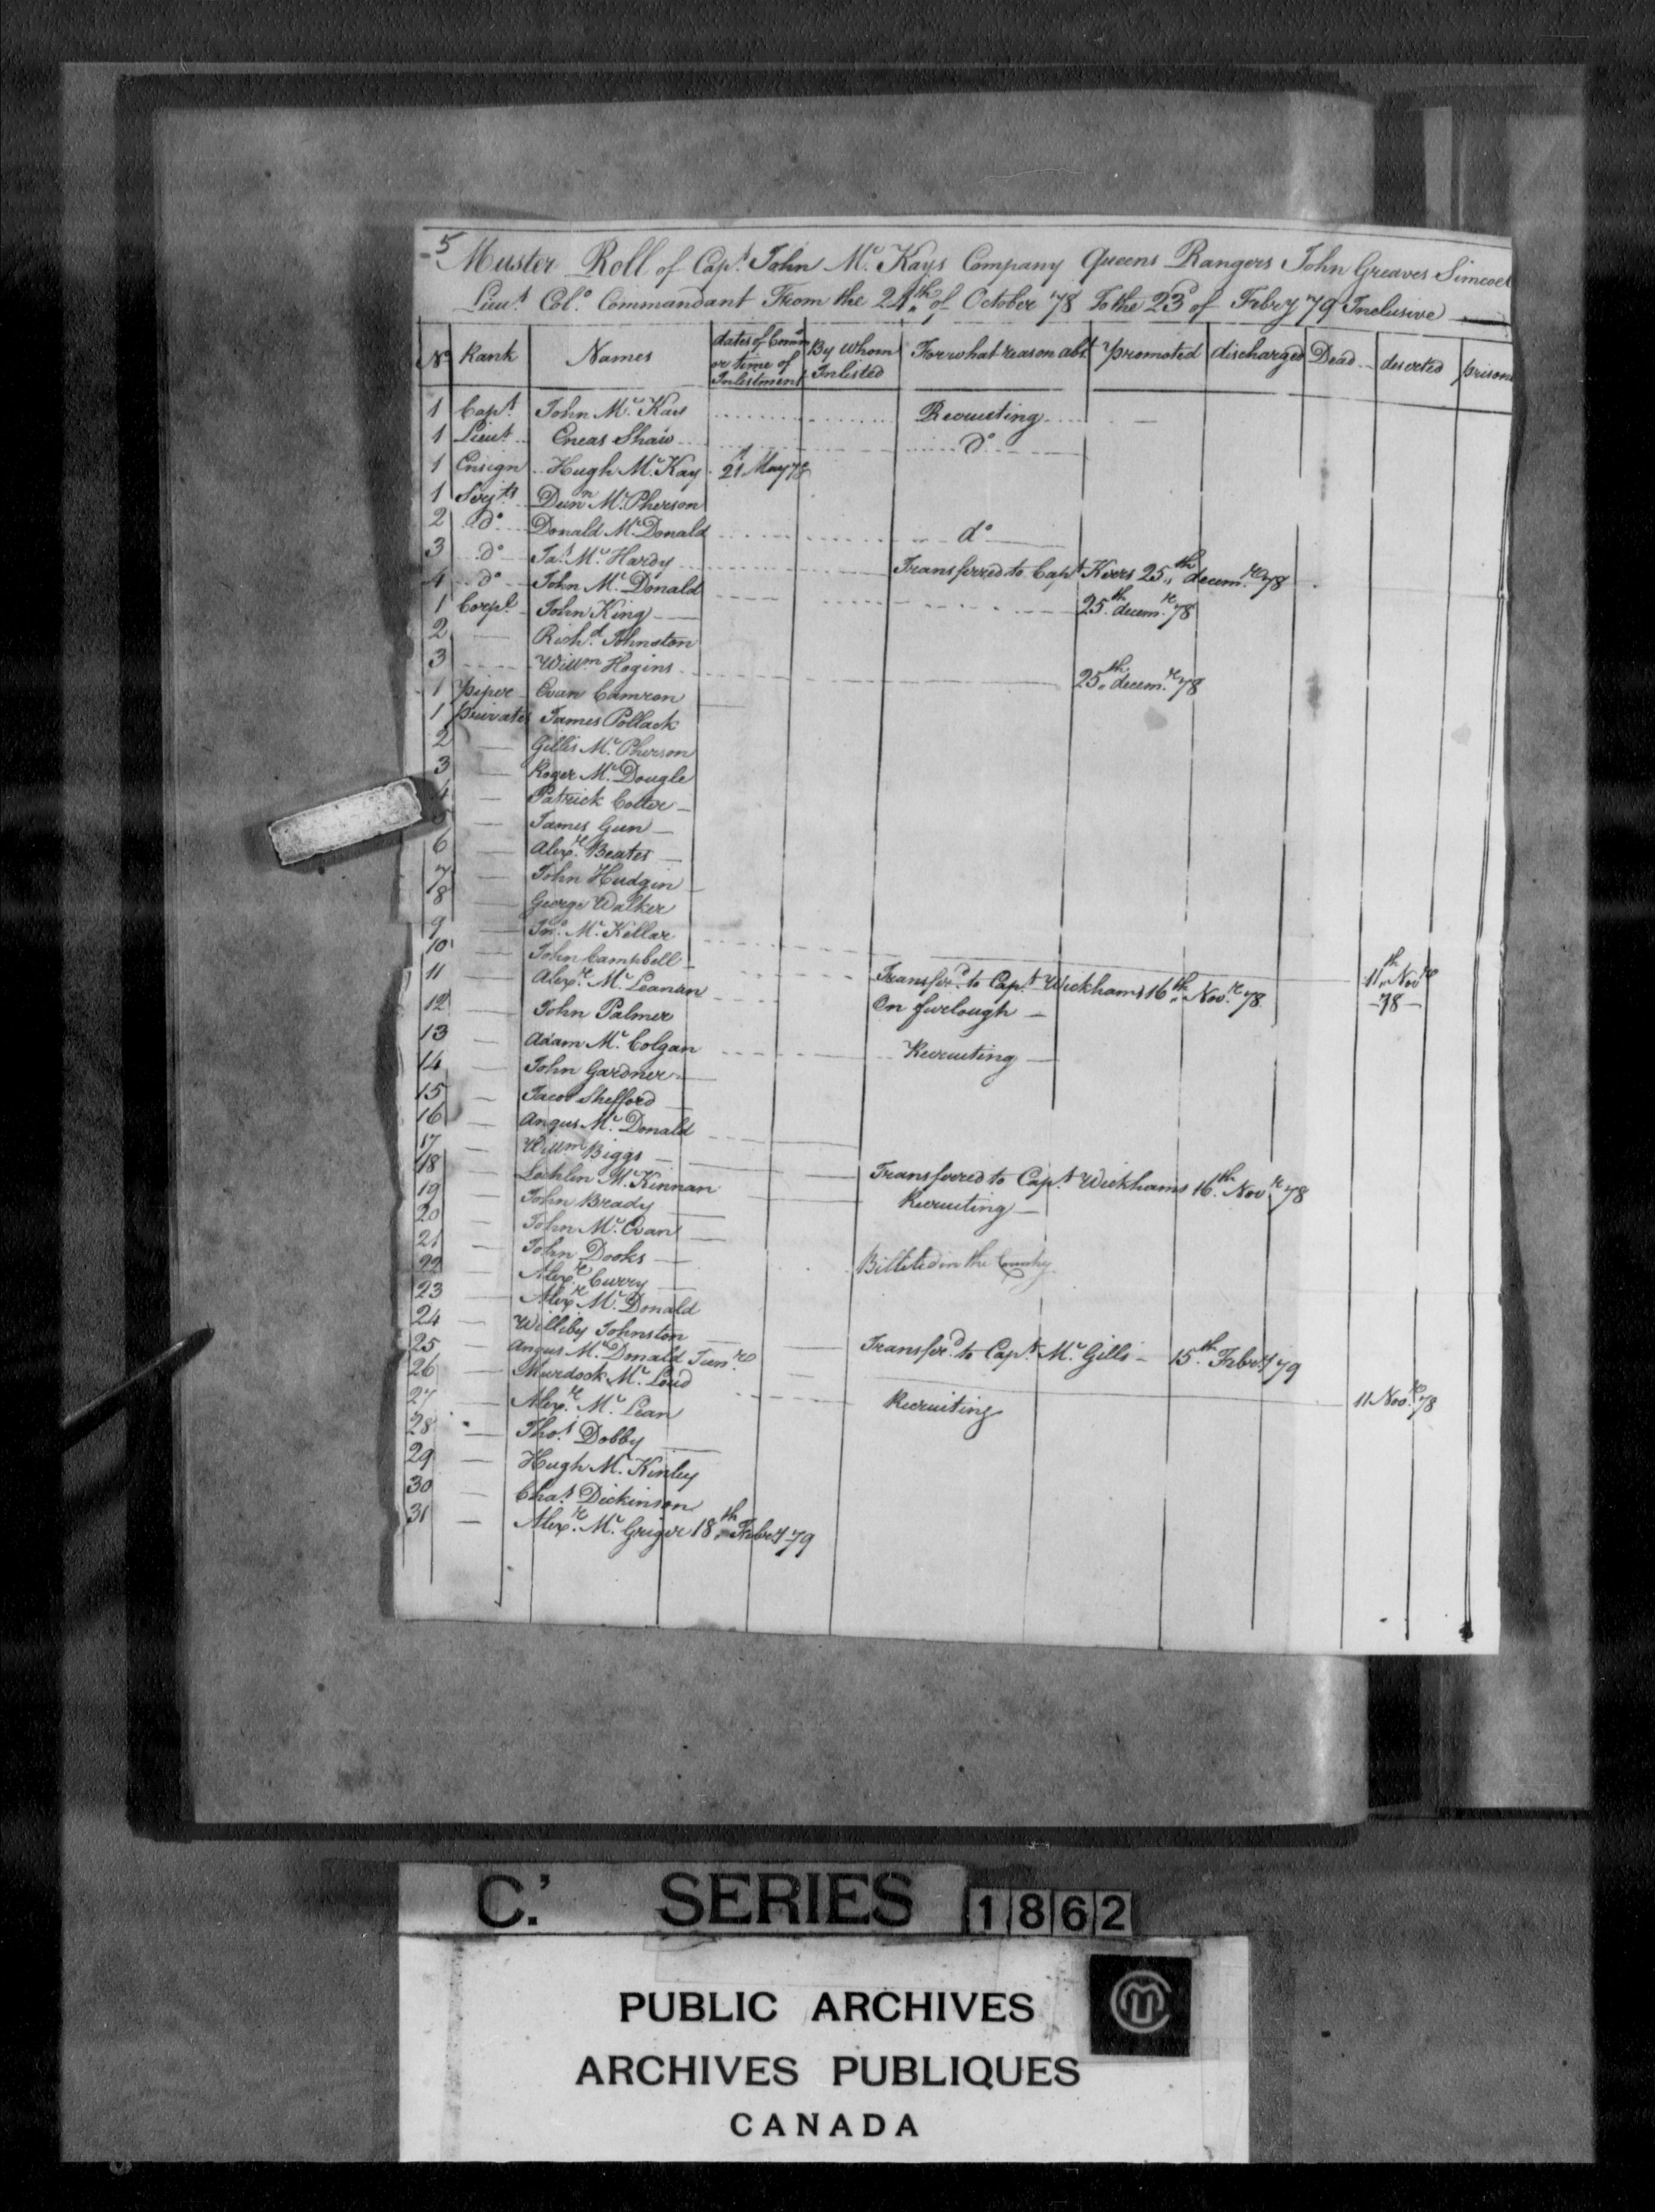 5 Muster Roll of Capt. John Mc. Kays Company Queens Rangers John Greaves Simcoe
Lieut. Colo. Commandant From the 24th of October 78 To the 23d of Febry 79 Inclusive
No Rank Names dates of Comn or time of Inlistment By whom Inlisted For what reason abt. promoted discharged Dead deserted prison
1 Capt. John Mc. Kay Recruiting
1 Lieut. Eneas Shaw do
1 Ensign Hugh Mc. Kay 21 May 78
1 Serjts Dunn Mc. Pherson
2 do Donald Mc. Donald do
3 do Jas. Mc. Hardy Transferred to Capt. Kerrs 25th decemre 78
4 do John Mc. Donald 25th decemr. 78
1 Corpl. John King
2 Richd. Johnston
3 Willm Hogins 25th decemr. 78
1 piper Evan Camron
1 privates James Pollack
2 Gillis Mc. Pherson
3 Roger Mc. Dougle
4 Patrick Colter
5 James Gun
6 Alexr. Beates
7 John Hudgin
8 George Walker
9 Jno. Mc. Kellar
10 John Campbell 11th Novr 78
11 Alexr. Mc. Leanan Transferd. to Capt. Wickhams 16th Novr. 78
12 John Palmer On furlough
13 Adam Mc. Colgan Recruiting
14 John Gardner
15 Jacob Shefford
16 Angus Mc. Donald
17 Willm Biggs
18 Lachlen Mc. Kinnan Transferred to Capt. Wickhams 16th. Novr. 78
19 John Brady Recruiting
20 John Mc. Evan
21 John Dooks Billeted in the Country
22 Alexr. Curry
23 Alexr. Mc. Donald
24 Williby Johnston
25 Angus Mc. Donald Junr. Transferd. to Capt. Mc. Gills 15th Febry 79
26 Murdock Mc. Loud
27 Alexr. Mc. Lean Recruiting 11 Novr. 78
28 Thos. Dobby
29 Hugh Mc. Kinley
30 Chas. Dickinson
31 Alexr. Mc. Griger 18th Febry 79
C.' SERIES 1862
PUBLIC ARCHIVES
ARCHIVES PUBLIQUES
CANADA